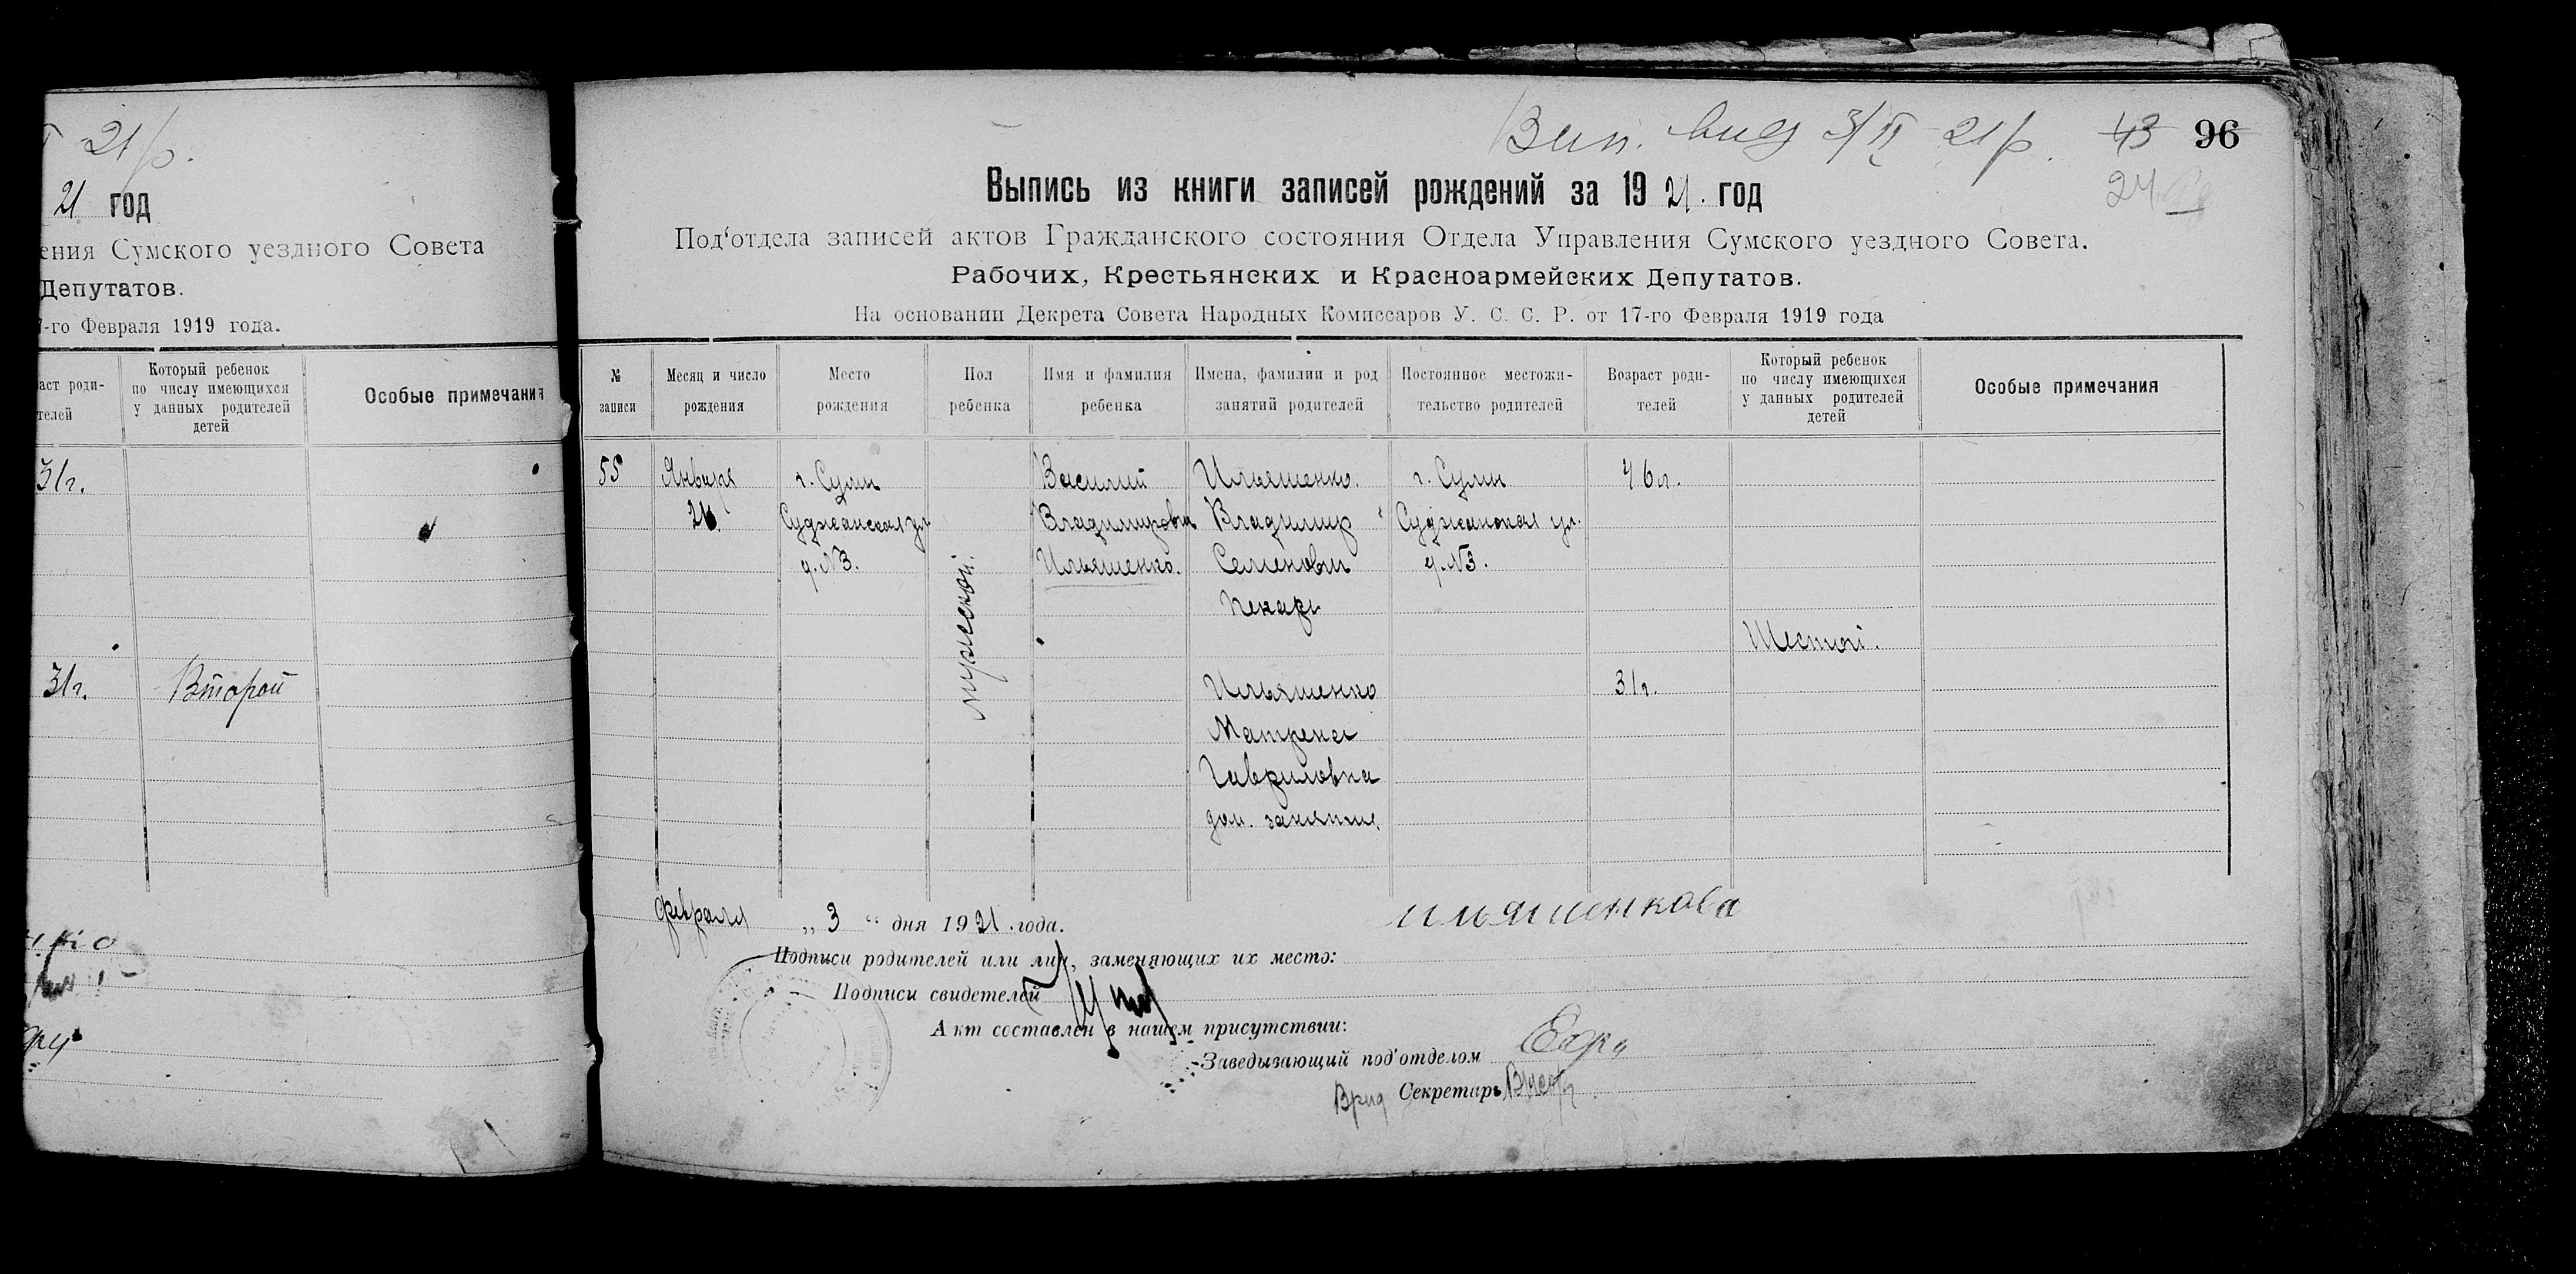 21 р.
21 год
ения Сумского уездного Совета
Депутатов.
-го Февраля 1919 года.
аст роди-
телей
Который ребенок
по числу имеющихся
у данных родителей
детей
Особые примечания
31г.
31г. Второй
Вип. вид 3/II 21 р. 43 96
24
Выпись из книги записей рождений за 1921. год
Под‘отдела записей актов Гражданского состояния Отдела Управления Сумского уездного Совета.
Рабочих, Крестьянских и Красноармейских Депутатов.
На основании Декрета Совета Народных Комиссаров У. С. С. Р. от 17-го Февраля 1919 года
№
записи
Месяц и число
рождения
Место
рождения
Пол
ребенка
Имя и фамилия
ребенка
Имена, фамилии и род
занятий родителей
Постоянное местожи-
тельство родителей
Возраст роди-
телей
Который ребенок
по числу имеющихся
у данных родителей
детей
Особые примечания
55 Января г. Сумы Василий Ильяшенко. г. Сумы 46л.
Суджанская ул Владимирович Владимир Суджанская ул.
д. №3. Ильяшенко. Семенович д. №3.
мужеской.
Пекарь
Шестой.
Ильяшенко 31г.
Матрена
Гавриловна
дом. занятия.
февраля „ 3 “ дня 1921. года.
ильяшенкова
Подписи родителей или лиц, заменяющих их место:
Подписи свидетелей
Акт составлен в нашем присутствии:
Заведывающий под‘отделом
Врид Секретарь